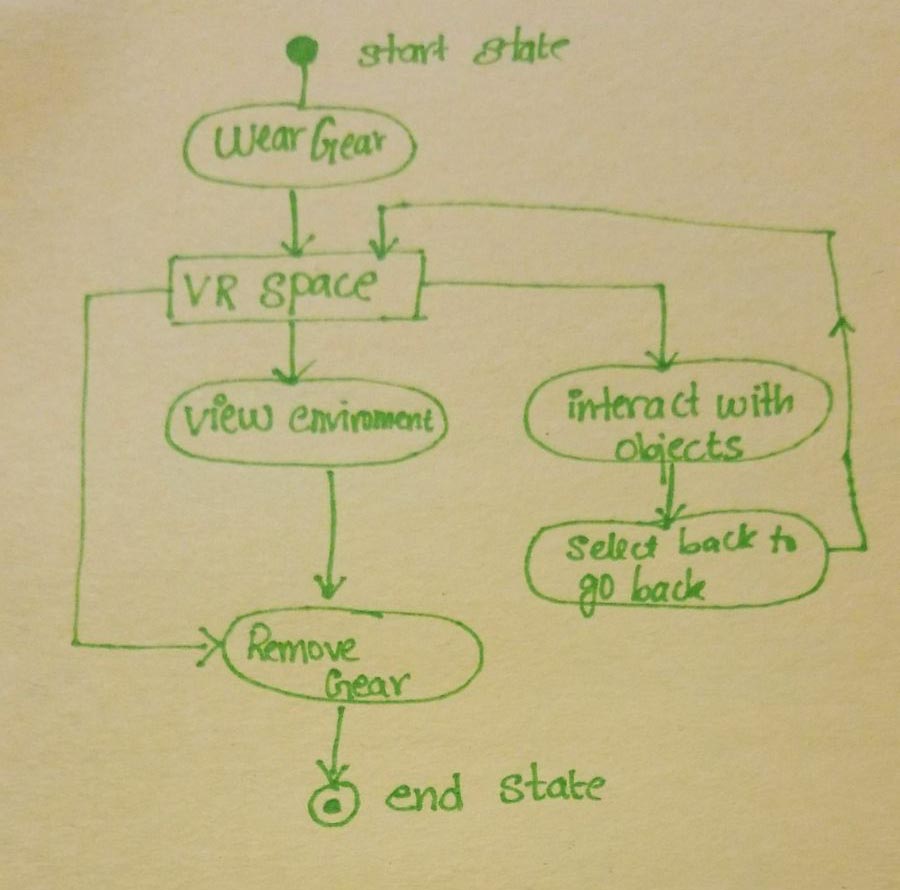 start state
Wear Gear
VR Space
View enviroment
interact with
objects
Select back to
go back
Remove
Gear
end state